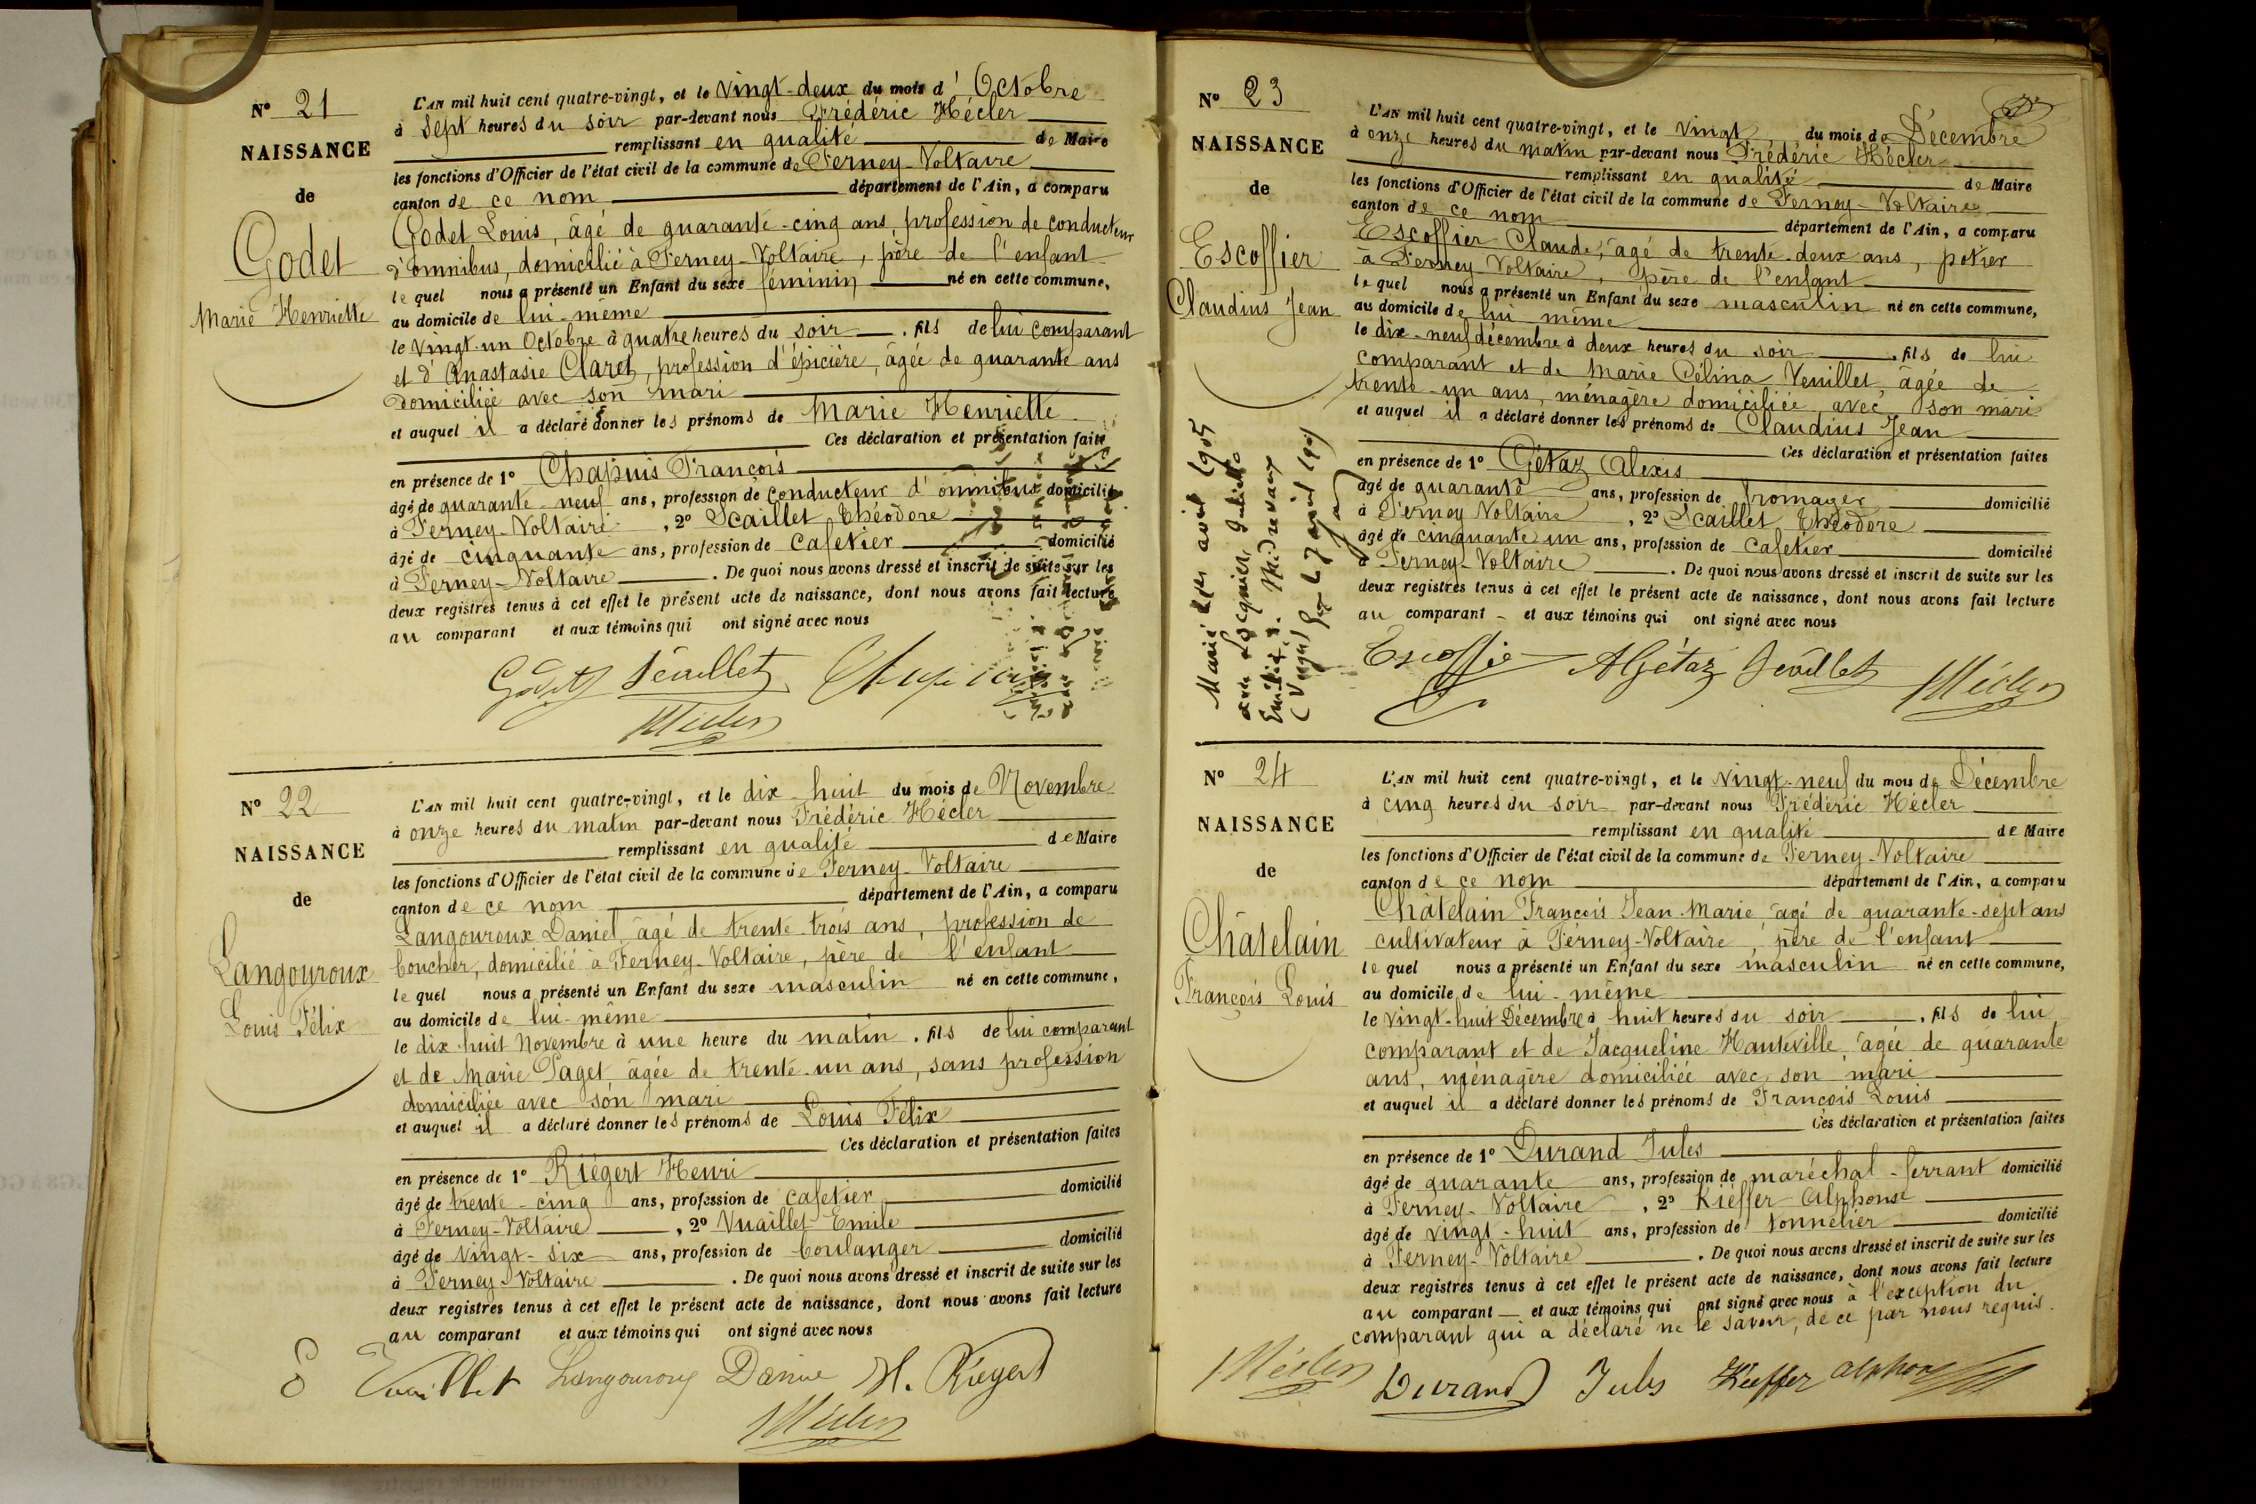 N° 21
NAISSANCE
de
Godet
Marie Henriette
L'AN mil huit cent quatre-vingt, et le vingt-deux du mois d'Octobre
à sept heures du soir par-devant nous Frédéric Hécler
remplissant en qualité de Maire
les fonctions d'Officier de l'état civil de la commune de Ferney-Voltaire
canton de ce nom département de l'Ain, a comparu
Godet Louis, âgé de quarante-cinq ans, profession de conducteur
d'omnibus, domicilié à Ferney-Voltaire, père de l'enfant
lequel nous a présenté un Enfant du sexe féminin né en cette commune,
au domicile de lui-même
le vingt-un Octobre à quatre heures du soir . fils de lui comparant
et d'Anastasie Claret, profession d'épicière, âgée de quarante ans
domiciliée avec son mari
et auquel il a déclaré donner les prénoms de Marie Henriette
Ces déclaration et présentation faites
en présence de 1° Chapuis François
âgé de quarante-neuf ans, profession de conducteur d'omnibus domicilié
à Ferney-Voltaire , 2° Scaillet Théodore
âgé de cinquante ans, profession de cafetier domicilié
à Ferney-Voltaire . De quoi nous avons dressé et inscrit de suite sur les
deux registres tenus à cet effet le présent acte de naissance, dont nous avons fait lecture
au comparant et aux témoins qui ont signé avec nous
N° 22
NAISSANCE
de
Langouroux
Louis Félix
L'AN mil huit cent quatre-vingt, et le dix huit du mois de Novembre
à onze heures du matin par-devant nous Frédéric Hécler
remplissant en qualité de Maire
les fonctions d'Officier de l'état civil de la commune de Ferney-Voltaire
canton de ce nom département de l'Ain, a comparu
Langouroux Daniel âgé de trente-trois ans, profession de
boucher, domicilié à Ferney-Voltaire, père de l'enfant
lequel nous a présenté un Enfant du sexe masculin né en cette commune,
au domicile de lui-même
le dix huit Novembre à une heure du matin . fils de lui comparant
et de Marie Paget, âgée de trente-un ans, sans profession
domiciliée avec son mari
et auquel il a déclaré donner les prénoms de Louis Félix
Ces déclaration et présentation faites
en présence de 1° Riégert Henri
âgé de trente-cinq ans, profession de cafetier domicilié
à Ferney-Voltaire , 2° Vuaillet Emile
âgé de vingt-six ans, profession de boulanger domicilié
à Ferney-Voltaire . De quoi nous avons dressé et inscrit de suite sur les
deux registres tenus à cet effet le présent acte de naissance, dont nous avons fait lecture
au comparant et aux témoins qui ont signé avec nous
E Vuaillet Langouroux Daniel H. Riegert
Hécler
N° 23
NAISSANCE
de
Escoffier
Claudius Jean
Marié le avril 1905
avec Juliette
L'AN mil huit cent quatre-vingt, et le vingt du mois de Décembre
à onze heures du matin par-devant nous Frédéric Hécler
remplissant en qualité de Maire
les fonctions d'Officier de l'état civil de la commune de Ferney-Voltaire
canton de ce nom département de l'Ain, a comparu
Escoffier Claude, âgé de trente-deux ans, potier
à Ferney-Voltaire, père de l'enfant
lequel nous a présenté un Enfant du sexe masculin né en cette commune,
au domicile de lui même
le dix-neuf décembre à deux heures du soir . fils de lui
comparant et de Marie Célina Venillet, âgée de
trente-un ans, ménagère domiciliée avec son mari
et auquel il a déclaré donner les prénoms de Claudius Jean
Ces déclaration et présentation faites
en présence de 1° Gétaz Alexis
âgé de quarante ans, profession de fromager domicilié
à Ferney Voltaire , 2° Scaillet Théodore
âgé de cinquante un ans, profession de cafetier domicilié
à Ferney-Voltaire . De quoi nous avons dressé et inscrit de suite sur les
deux registres tenus à cet effet le présent acte de naissance, dont nous avons fait lecture
au comparant et aux témoins qui ont signé avec nous
Escoffie A Gétaz Scaillet Hécler
N° 24
NAISSANCE
de
Châtelain
François Louis
L'AN mil huit cent quatre-vingt, et le vingt-neuf du mois de Décembre
à cinq heures du soir par-devant nous Frédéric Hécler
remplissant en qualité de Maire
les fonctions d'Officier de l'état civil de la commune de Ferney-Voltaire
canton de ce nom département de l'Ain, a comparu
Châtelain François Jean-Marie âgé de quarante-sept ans
cultivateur à Ferney-Voltaire, père de l'enfant
lequel nous a présenté un Enfant du sexe masculin né en cette commune,
au domicile de lui-même
le vingt-huit Décembre à huit heures du soir . fils de lui
comparant et de Jacqueline Hauteville, âgée de quarante
ans, ménagère domiciliée avec son mari
et auquel il a déclaré donner les prénoms de François Louis
Ces déclaration et présentation faites
en présence de 1° Durand Jules
âgé de quarante ans, profession de maréchal-ferrant domicilié
à Ferney-Voltaire , 2° Kiéffer Alphonse
âgé de vingt-huit ans, profession de tonnelier domicilié
à Ferney-Voltaire . De quoi nous avons dressé et inscrit de suite sur les
deux registres tenus à cet effet le présent acte de naissance, dont nous avons fait lecture
au comparant et aux témoins qui ont signé avec nous à l'exception du
comparant qui a déclaré ne le savoir, de ce par nous requis.
Hécler Durand Jules Kieffer alphonse